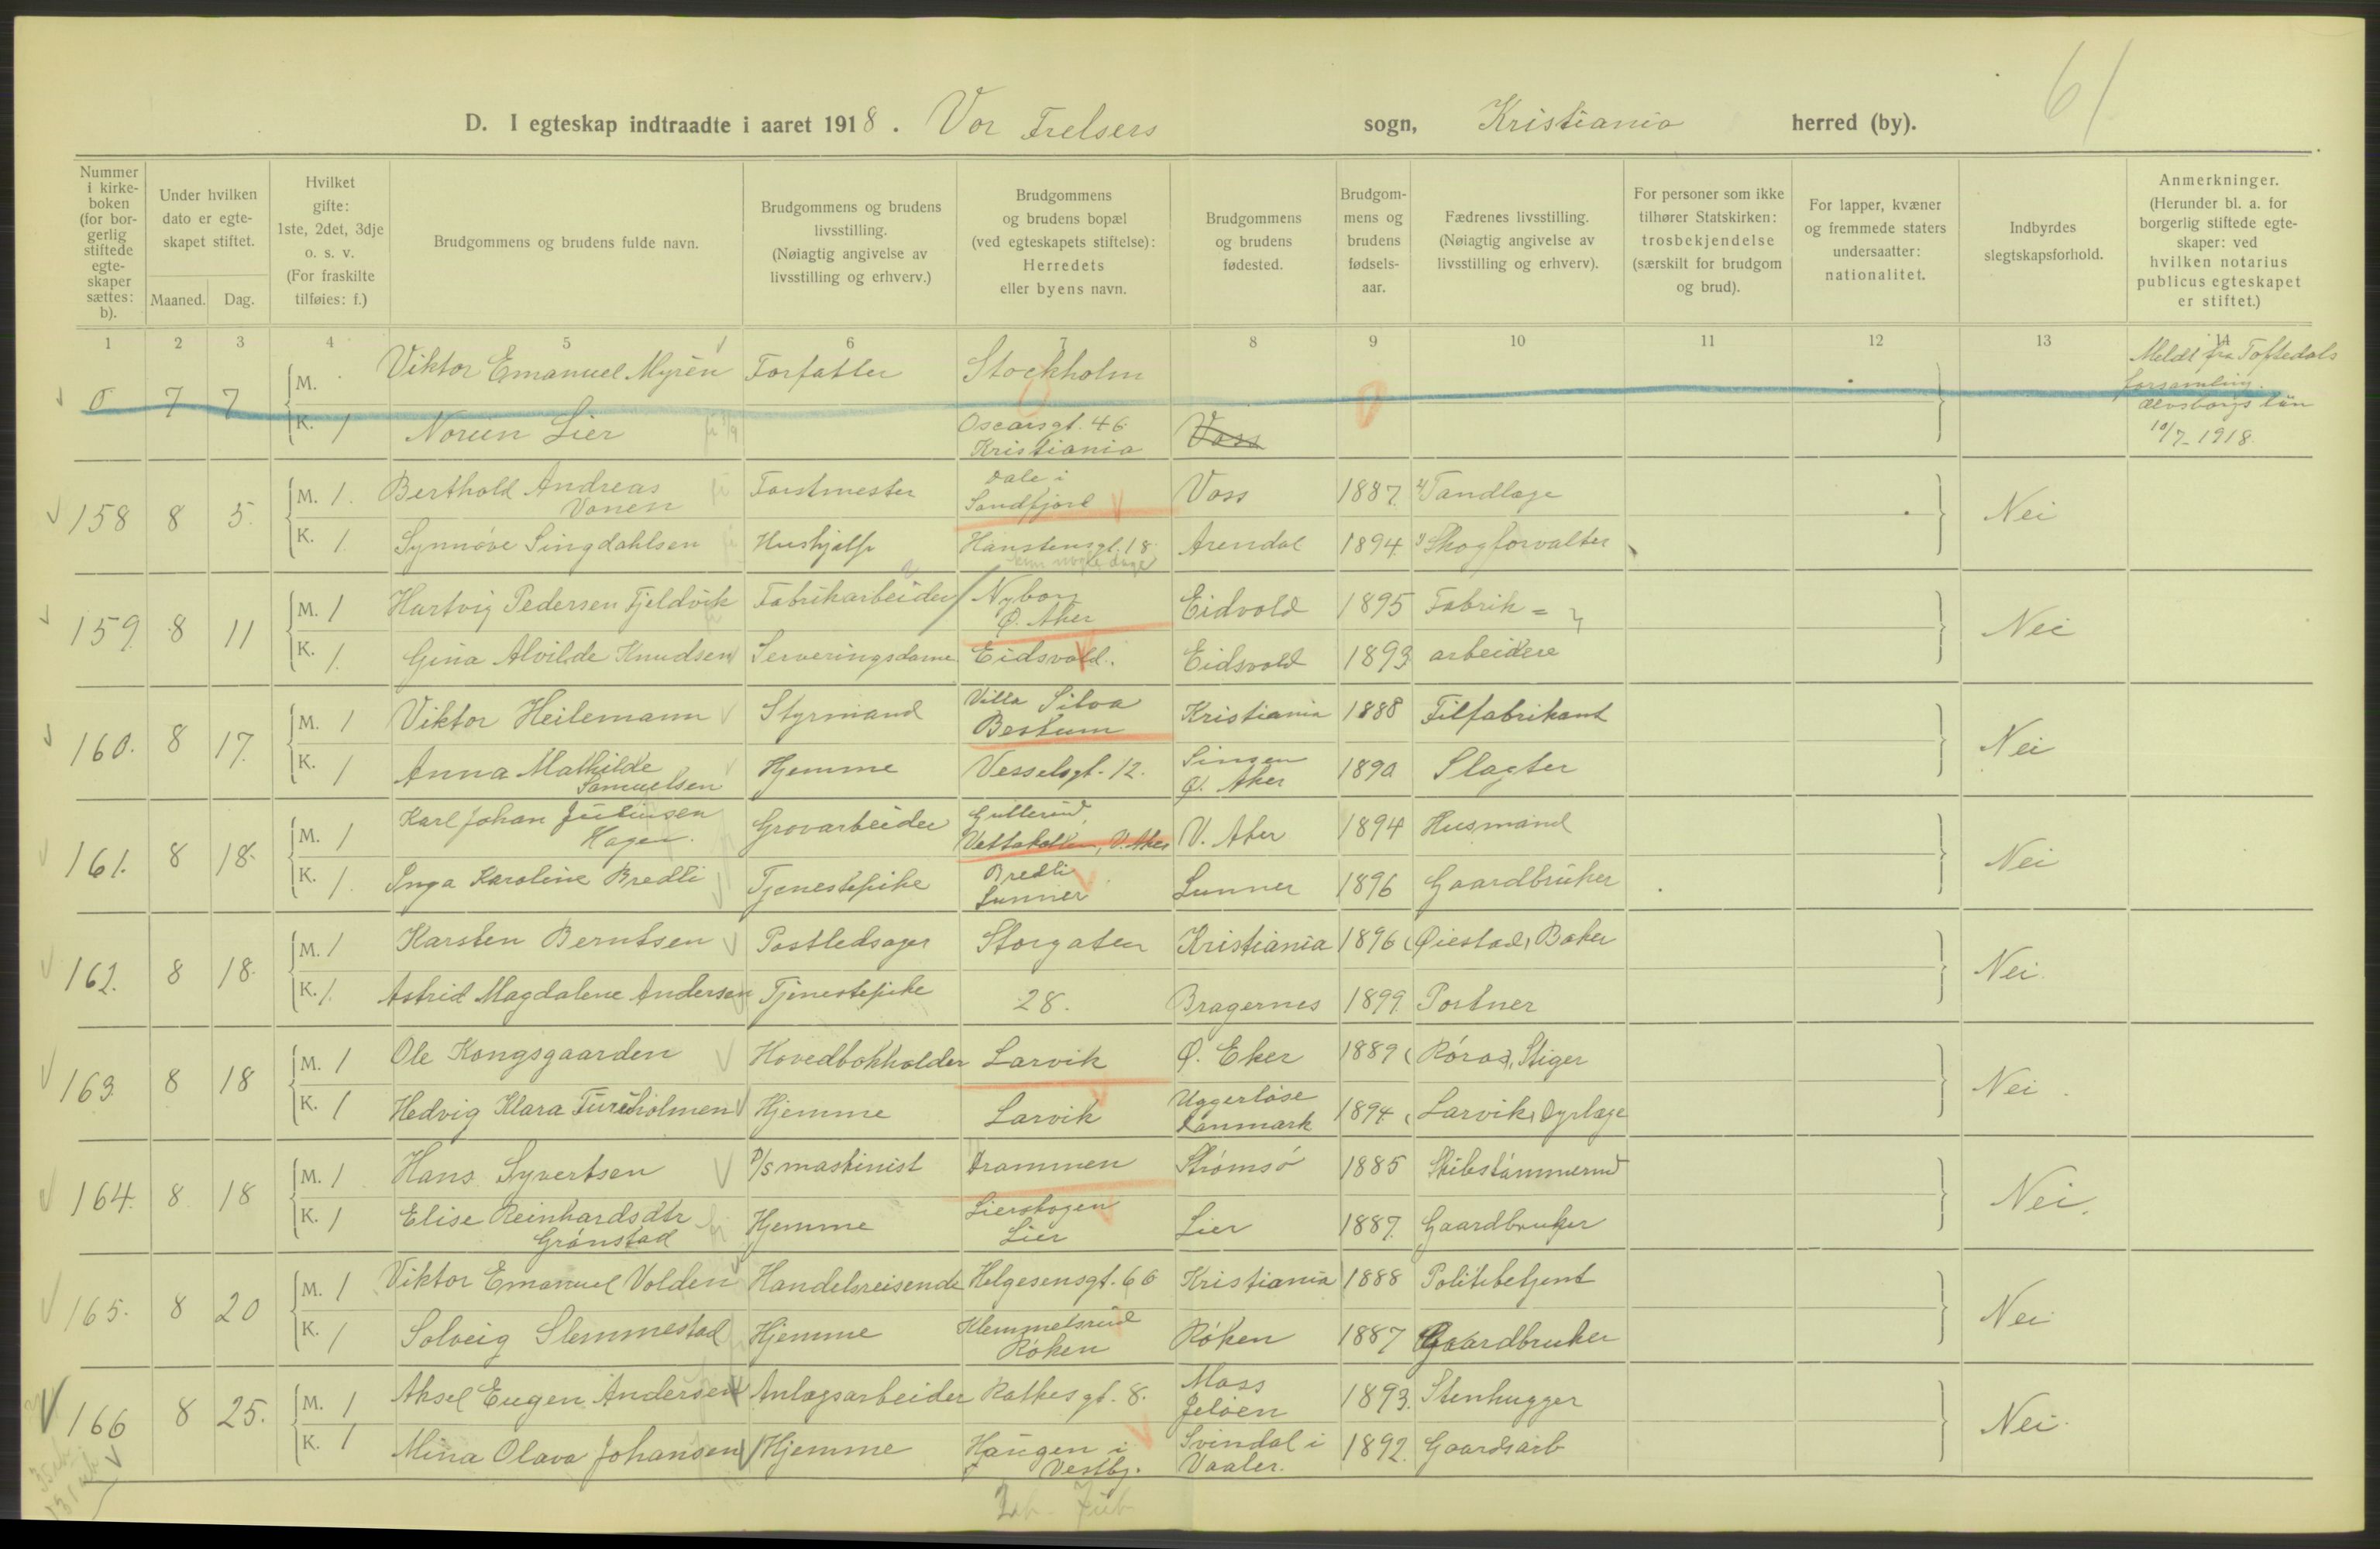 61
D. I egteskap indtraadte i aaret 1918. Vor Frelsers sogn, Kristiania herred (by).
Nummer i kirke- boken (for bor- gerlig stiftede egte- skaper sættes: b).
Under hvilken dato er egte- skapet stiftet.
Maaned. Dag.
Hvilket gifte: 1ste, 2det, 3dje o. s. v. (For fraskilte tilføies: f.)
Brudgommens og brudens fulde navn.
Brudgommens og brudens livsstilling. (Nøiagtig angivelse av livsstilling og erhverv.)
Brudgommens og brudens bopæl (ved egteskapets stiftelse): Herredets eller byens navn.
Brudgommens og brudens fødested.
Brudgom- mens og brudens fødsels- aar.
Fædrenes livsstilling. (Nøiagtig angivelse av livsstilling og erhverv).
For personer som ikke tilhører Statskirken: trosbekjendelse (særskilt for brudgom og brud).
For lapper, kvæner og fremmede staters undersaatter: nationalitet.
Indbyrdes slegtskapsforhold.
Anmerkninger. (Herunder bl. a. for borgerlig stiftede egte- skaper: ved hvilken notarius publicus egteskapet er stiftet.)
1 2 3 4 5 6 7 8 9 10 11 12 13 14
0 7 7 M. Viktor Emanuel Myrén Forfatter Stockholm Meldt fra Toftedals forsamling. 10/7-1918.
K. 1 Noreen Lier Oscarsgt. 46 Kristiania Voss
158 8 5. M. 1. Berthold Andreas Vonen Forstmester Dale i Sondfjord Voss 1887. Tandlæge Nei
K. 1. Synnøve Singdahlsen Hushjælp Hanstensgt. 18. Arendal 1894 Skogforvalter
159. 8 11 M. 1 Hartvig Pedersen Fjeldvik Fabrikarbeider Nyborg Ø. Aker Eidvold 1895 Fabrik = Nei
K. 1. Gina Alvilde Knudsen Serveringsdame Eidsvold. Eidsvold 1893 arbeidere
160. 8 17. M. 1 Viktor Heilemann Styrmand Villa Silva Bestum Kristiania 1888 Filfabrikant Nei
K. 1 Anna Mathilde Samuelsen Hjemme Vesselsgt. 12. Sinsen Ø. Aker 1890 Slagter
161. 8 18. M. 1 Karl Johan Juliussen Hagen. Grovarbeider Gullerud, Vettakollen, V. Aker V. Aker 1894 Husmand Nei
K. 1. Inga Karoline Bredli Tjenestepike Bredli Lunner Lunner 1896 Gaardbruker
162. 8 18. M. 1 Karsten Berntsen Postledsager Storgaten Kristiania 1896 Øiestad, Baker Nei.
K. 1. Astrid Magdalene Andersen Tjenestepike 28. Bragernes 1899 Portner
163. 8 18 M. 1 Ole Kongsgaarden Hovedbokholder Larvik Ø. Eker 1889 Røros, Stiger Nei.
K. 1 Hedvig Klara Tureholmen Hjemme Larvik Uggerløse Danmark 1894 Larvik, Dyrlæge
164. 8 18 M. 1 Hans Syvertsen D/S maskinist Drammen Strømsø 1885 Skibstømmermd Nei.
K. 1 Elise Reinhardsdtr Grønstad Hjemme Lierskogen Lier Lier 1887. Gaardbruker
165. 8 20 M. 1 Viktor Emanuel Volden Handelsreisende Helgesensgt. 66 Kristiania 1888 Politibetjent Nei
K. 1 Solveig Slemmestad Hjemme Klemmetsrud Røken Røken 1887 Gaardbruker
166 8 25. M. 1 Aksel Eugen Andersen Anlægsarbeider Rathesgt. 8. Moss Jeløen 1893. Stenhugger Nei.
K. 1 Mina Olava Johansen Hjemme Haugen i Vestby. Svindal i Vaaler. 1892. Gaardsarb